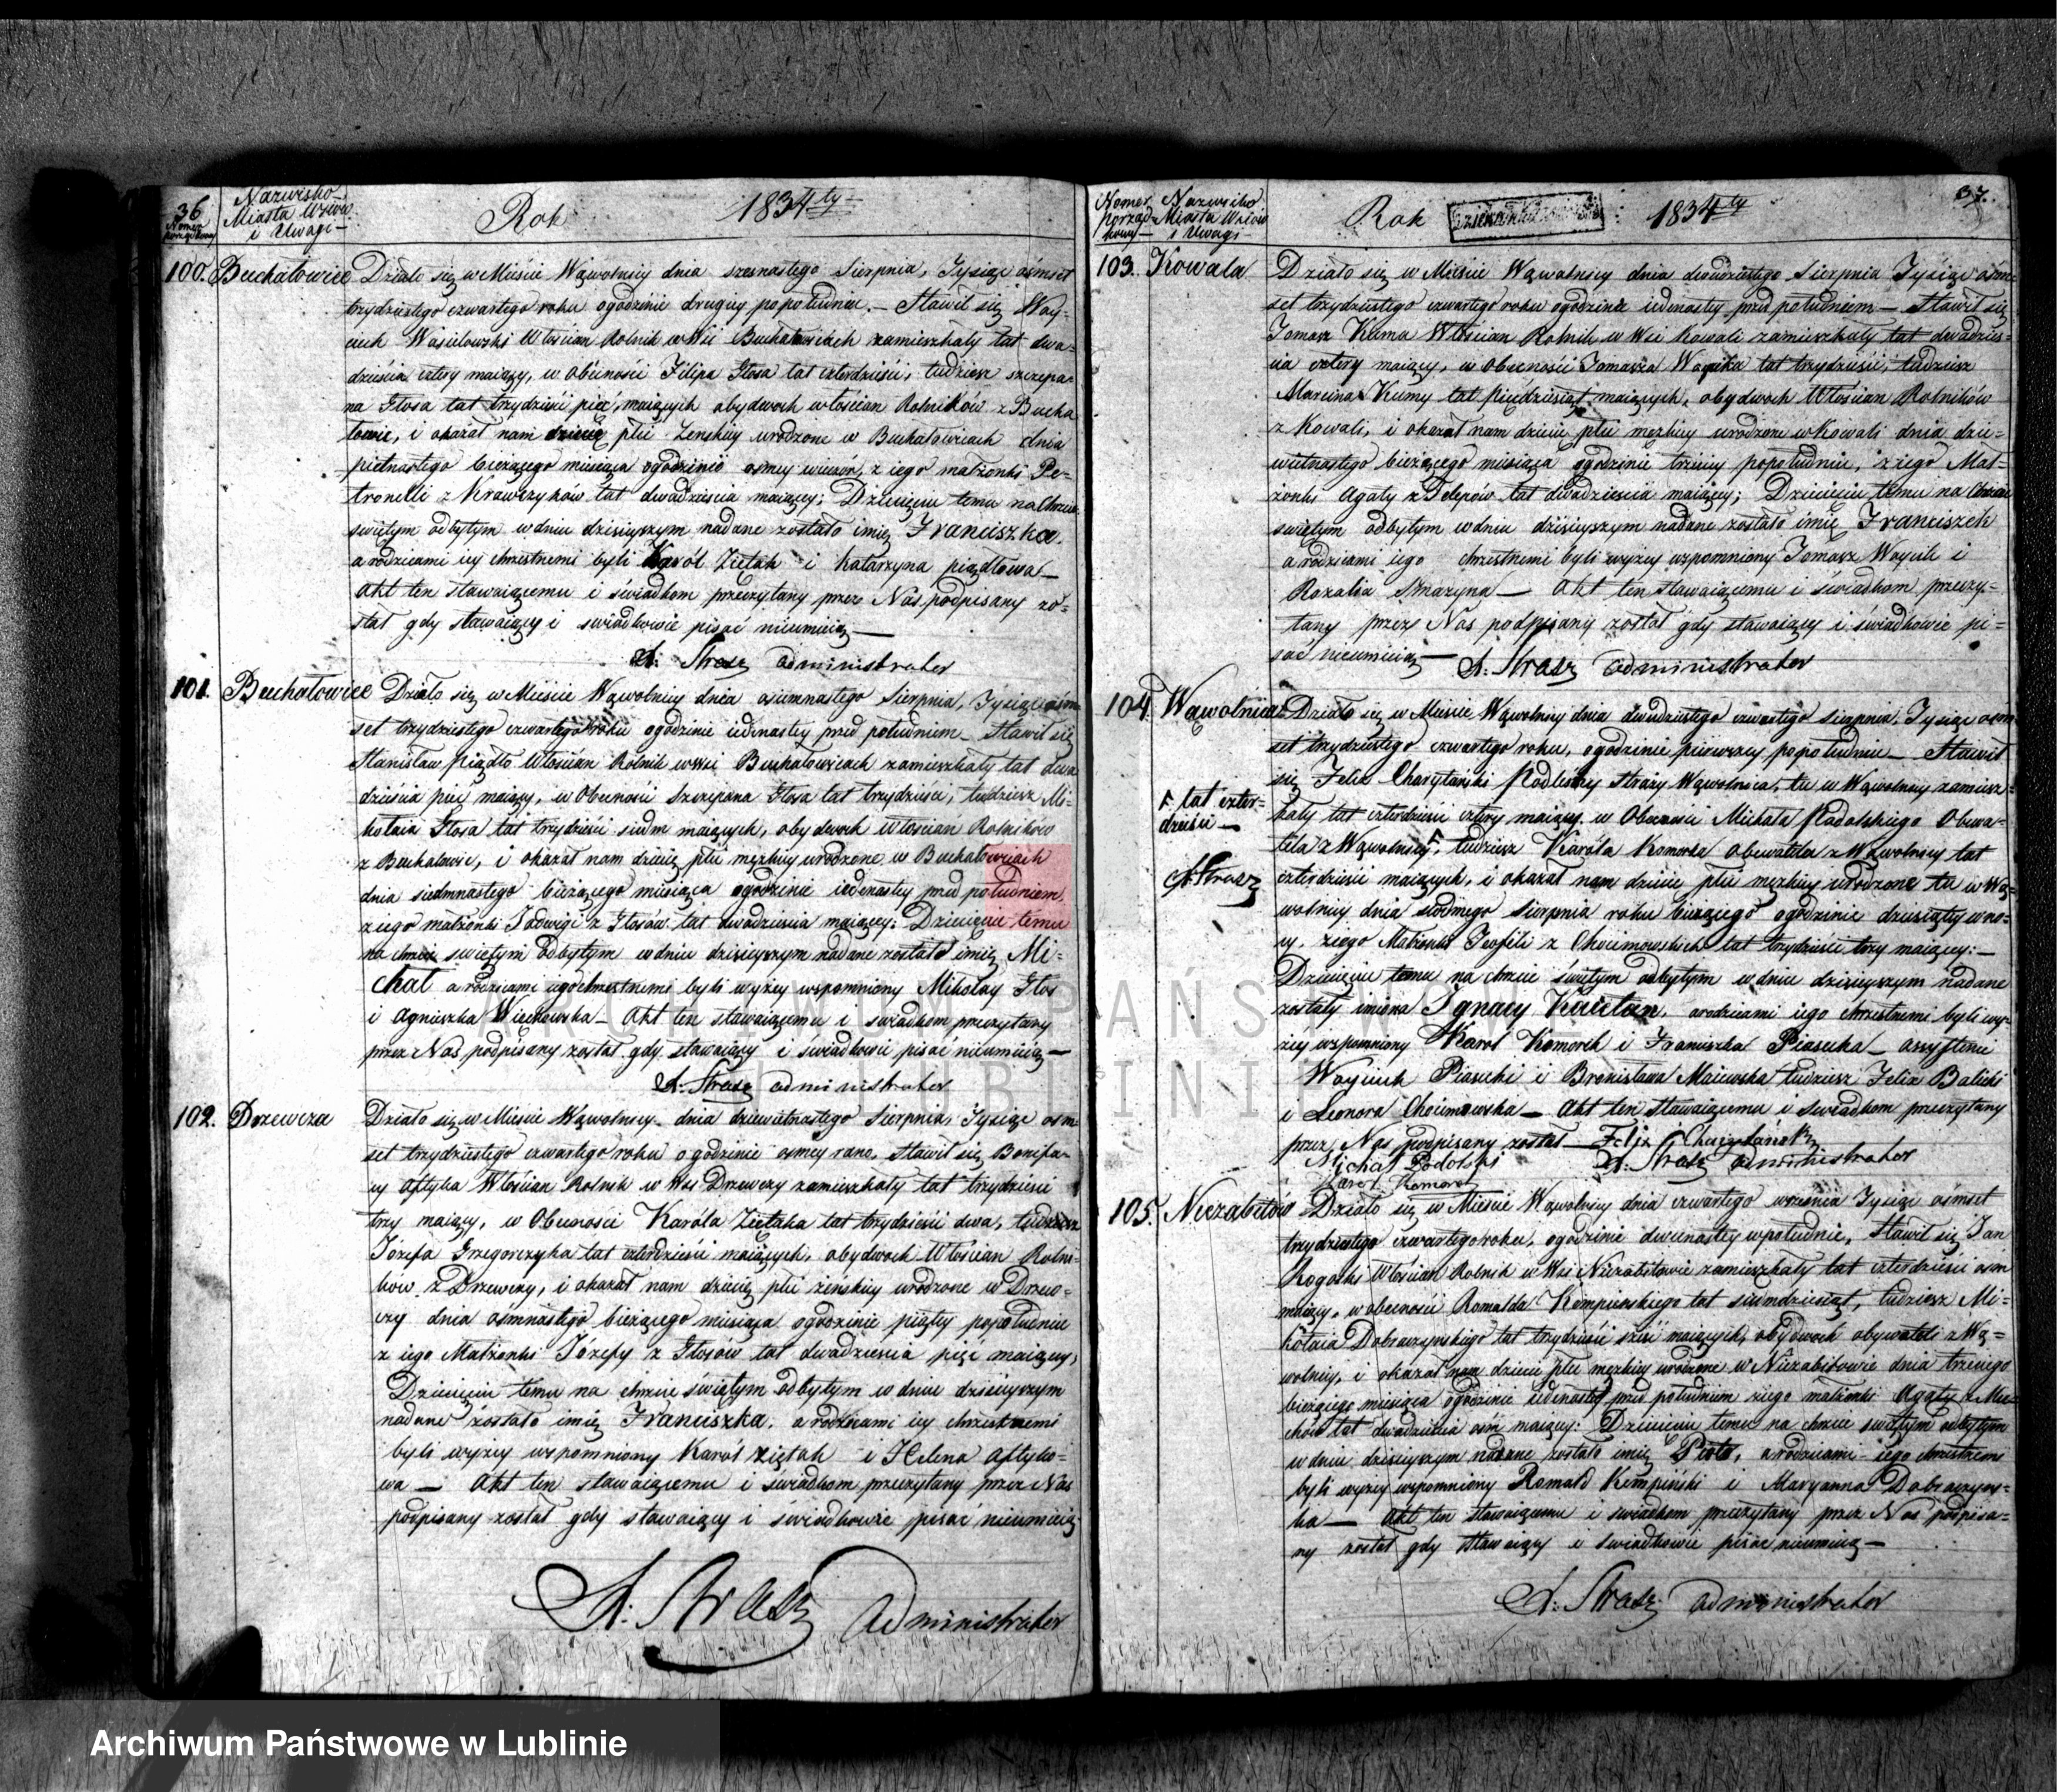 36
Nomer porządkowy
Nazwisko
Miasta Wsiów
i Uwagi
Rok 1834ty
100. Buchałowice
Działo się w Mieście Wąwolnicy dnia szesnastego Sierpnia, Tysiąc ośmset
trzydziestego czwartego roku ogodzinie drugiey popołudniu. — Stawił się Woy-
ciech Wasilowski Włościan Rolnik w Wsi Buchałowicach zamieszkały lat dwa-
dzieścia cztery maiący, w Obecności Filipa Głosa lat czterdzieści, tudziesz szczepa-
na Głosa lat trzydzieści pięć, maiących obydwoch włościan Rolników z Bucha
łowic, i okazał nam dziecię płci Zenskiey urodzone w Buchałowicach dnia
pietnastego bieżącego miesiąca ogodzinie osmey wieczór, z iego małżonki Pe-
tronelli z Krawczyków lat dwadzieścia maiącey; Dziecięciu temu na Chrzcie
świętym odbytym w dniu dzisieyszym nadane zostało imię Franciszka.
a rodzicami iey chrzestnemi byli Karól Ziętak i Katarzyna piądłowa —
Akt ten stawaiącemu i świadkom przeczytany przez Nas podpisany zo-
stał gdy stawaiący i świadkowie pisać nieumieią —
A: Strasz administrator
101. Buchałowice
Działo się w Mieście Wąwolnicy dnia osiumnastego Sierpnia, Tysiąc ośm
set trzydziestego czwartego roku ogodzinie iedenastey przed południem — Stawił się
Stanisław Piądło Włościan Rolnik w wsi Buchałowicach zamieszkały lat dwa
dzieścia pięć maiący, w Obecności Szczepana Głosa lat trzydzieści, tudziesz Mi-
kołaia Głosa lat trzydzieści siedm maiących, obydwoch Włościan Rolników
z Buchałowic, i okazał nam dziecię płci męzkiey urodzone w Buchałowicach
dnia siedmnastego bieżącego miesiąca ogodzinie iedenastey przed południem,
z iego małżonki Jadwigi z Głosów lat dwadzieścia maiącey: Dziecięciu temu
na chrzcie świętym odbytym w dniu dzisieyszym nadane zostało imię Mi-
chał a rodzicami iego chrzestnemi byli wyżey wspomniony Mikołay Głos
i Agnieszka Wieczkowska — Akt ten stawaiącemu i świadkom przeczytany
przez Nas podpisany został gdy stawaiący i świadkowie pisać nieumieią —
A: Strasz administrator
102. Drzewcza
Działo się w Mieście Wąwolnicy dnia dziewietnastego Sierpnia, Tysiąc ośm
set trzydziestego czwartego roku o godzinie osmey rano, stawił się Bonifa-
cy Aftyka Włościan Rolnik w Wsi Drzewczy zamieszkały lat trzydzieści
trzy maiący, w Obecności Karóla Ziętaka lat trzydzieści dwa, tudziesz
Józefa Grzegorczyka lat czterdzieści maiących, obydwoch Włościan Rolni-
ków z Drzewczy, i okazał nam dziecię płci żeńskiey urodzone w Drzew-
czy dnia ośmnastego bieżącego miesiąca ogodzinie piątey popołudniu
z iego Małżonki Józefy z Głosów lat dwadzieścia pięć maiącey,
Dziecięciu temu na chrzcie świętym odbytym w dniu dzisieyszym
nadane zostało imię Franciszka, a rodzicami iey chrzestnemi
byli wyżey wspomniony Karol Ziętak i Helena Aftyko-
wa — Akt ten stawaiącemu i świadkom przeczytany przez Nas
podpisany został gdy stawaiący i świadkowie pisać nieumieią
A: Strasz Administrator
37.
Nomer porządkowy
Nazwisko
Miasta Wsiów
i Uwagi
Rok 1834ty
103. Kowala
Działo się w Mieście Wąwolnicy dnia dwudziestego Sierpnia Tysiąc ośm
set trzydziestego czwartego roku ogodzinie iedenastey przed południem — Stawił się
Tomasz Kuma Włościan Rolnik w Wsi Kowali zamieszkały lat dwadzieś-
cia cztery maiący, w Obecności Tomasza Woycika lat trzydzieści, tudziesz
Marcina Kumy lat pięćdziesiąt maiących, obydwoch Włościan Rolników
z Kowali, i okazał nam dziecię płci męzkiey urodzone w Kowali dnia dzie-
wietnastego bieżącego miesiąca ogodzinie trzeciey popołudniu, z iego Mał-
żonki Agaty z Telepów lat dwadzieścia maiącey; Dziecięciu temu na Chrzcie
świętym odbytym w dniu dzisieyszym nadane zostało imię Franciszek
a rodzicami iego chrzestnemi byli wyżey wspomniony Tomasz Woycik i
Rozalia Smazyna — Akt ten stawaiącemu i świadkom przeczy-
tany przez Nas podpisany został gdy stawaiący i świadkowie pi-
sać nieumieią — A: Strasz administrator
104. Wąwolnica
Działo się w Mieście Wąwolnicy dnia dwudziestego czwartego Sierpnia, Tysiąc ośm
set trzydziestego czwartego roku, ogodzinie pierwszey popołudniu — Stawił
się Felix Charytański Podleśny Straży Wąwolnica, tu w Wąwolnicy zamiesz-
kały lat czterdzieści cztery maiący, w Obecności Michała Podolskiego Obywa-
tela z Wąwolnicy, tudziesz Karóla Komorka obywatela z Wąwolnicy lat
czterdzieści maiących, i okazał nam dziecię płci męzkiey urodzone tu w Wą-
wolnicy dnia siódmego Sierpnia roku bieżącego ogodzinie dziesiątey w no-
cy, z iego Małżonki Teofili z Chocimowskich lat trzydzieści trzy maiącey: —
Dziecięciu temu na chrzcie świętym odbytym w dniu dzisieyszym nadane
zostały imiona Ignacy Kaietan, a rodzicami iego chrzestnemi byli wy-
żey wspomniony Karol Komorek i Franciszka Piasecka — assystenci
Woyciech Piasecki i Bronisława Maiewska tudziesz Felix Balicki
i Leonora Chocimowska — Akt ten stawaiącemu i świadkom przeczytany
przez Nas podpisany został — Felix Charytański
Michał Podolski A: Strasz administrator
Karol Komorek
lat czter-
dzieści —
A: Strasz
105. Niezabitów
Działo się w Mieście Wąwolnicy dnia czwartego września Tysiąc ośmset
trzydziestego czwartego roku, ogodzinie dwunastey w południe, Stawił się Jan
Rogoski Włościan Rolnik w Wsi Niezabitowie zamieszkały lat czterdzieści ośm
maiący, w obecności Romalda Kempińskiego lat siedmdziesiąt, tudziesz Mi-
kołaia Dobraczynskiego lat trzydzieści sześć maiących, obydwoch obywateli z Wą-
wolnicy, i okazał nam dziecię płci męzkiey urodzone w Niezabitowie dnia trzeciego
bieżącego miesiąca ogodzinie iedenastey przed południem z iego małżonki Agaty z
lat dwadzieścia ośm maiącey: Dziecięciu temu na chrzcie świętym odbytym
w dniu dzisieyszym nadane zostało imię Piotr, a rodzicami iego chrzestnemi
byli wyżey wspomniony Romald Kempiński i Maryanna Dobraczyńs-
ka — Akt ten stawaiącemu i świadkom przeczytany przez Nas podpisa-
ny został gdy stawaiący i świadkowie pisać nieumieią —
A: Strasz administrator
ARCHIWUM PAŃSTWOWE
W LUBLINIE
Archiwum Państwowe w Lublinie